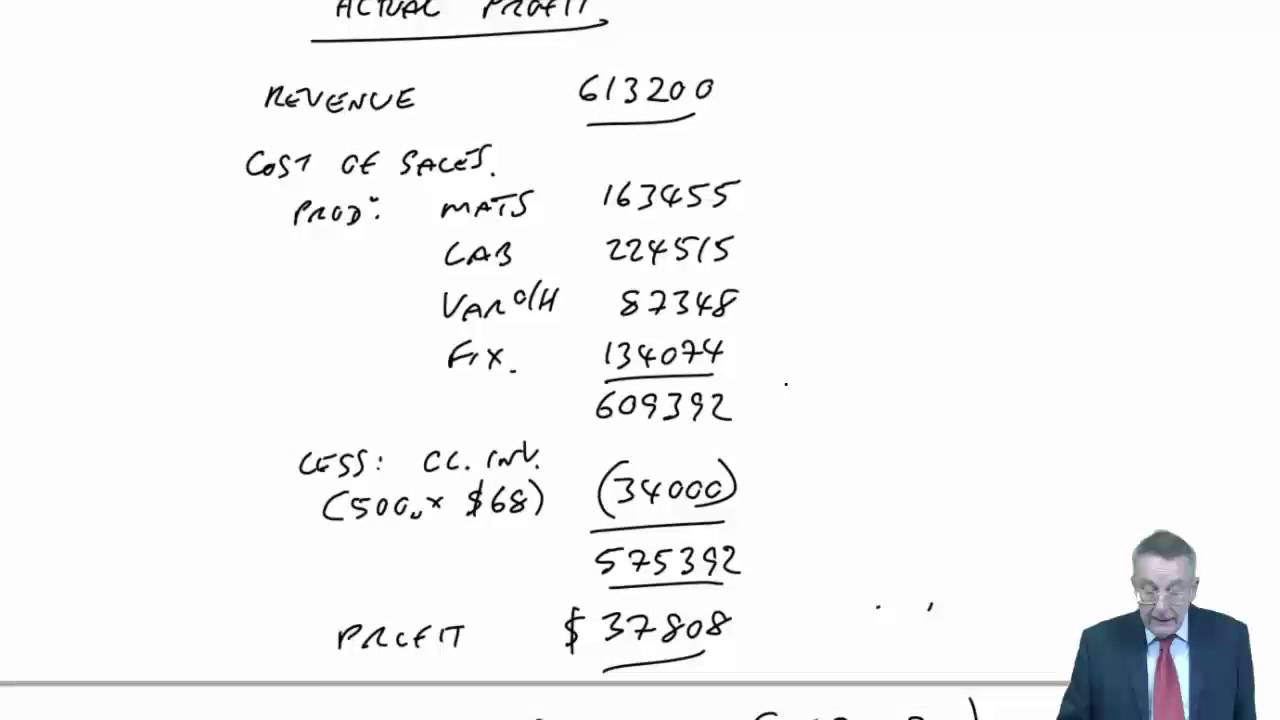 ACTUAL PROFIT
REVENUE 613200
COST OF SALES.
PROD: MATS 163455
LAB 224515
VAR O/H 87348
FIX. 134074
609392
LESS: CL. INV.
(500u × $68) (34000)
575392
PROFIT $37808